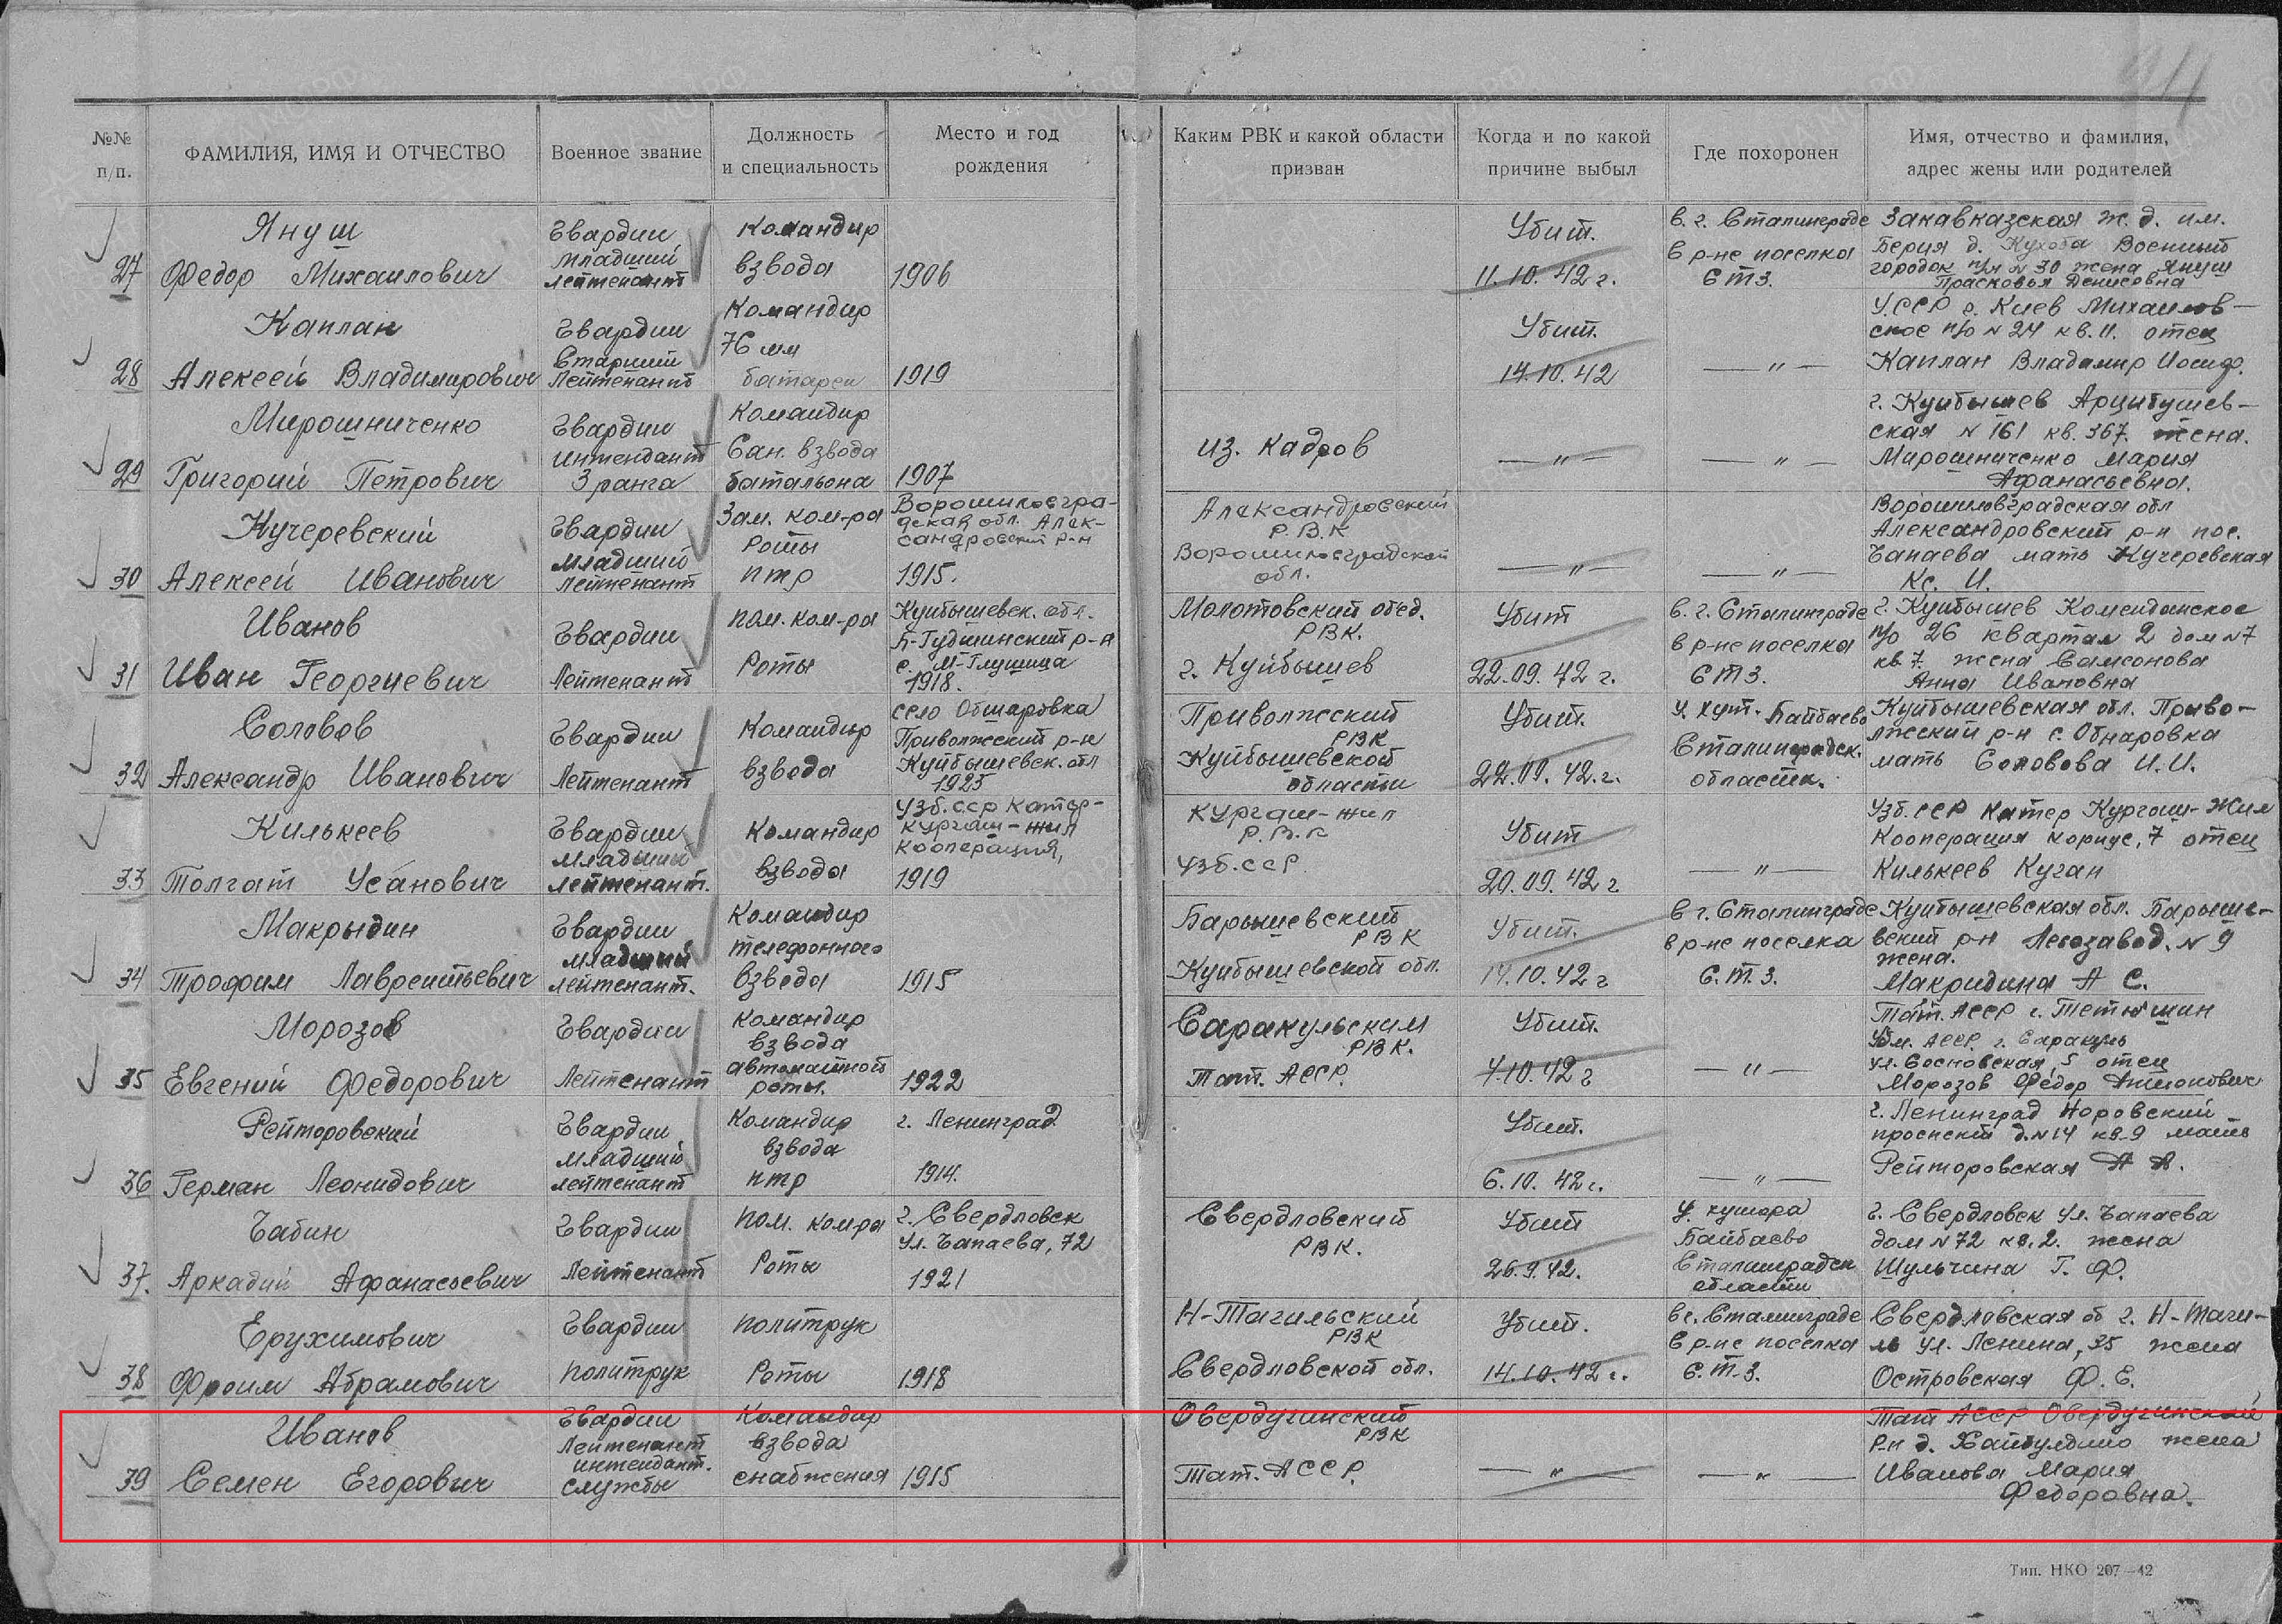 94
№№ п/п.
ФАМИЛИЯ, ИМЯ И ОТЧЕСТВО
Военное звание
Должность
и специальность
Место и год
рождения
Каким РВК и какой области
призван
Когда и по какой
причине выбыл
Где похоронен
Имя, отчество и фамилия,
адрес жены или родителей
27
Януш
Федор Михаилович
Гвардии
младший
лейтенант
Командир
взвода
1906
Убит.
11.10.42 г.
в. г. Сталинграде
в р-не поселка
СТЗ.
Закавказская ж.д. им.
Берия д. Военный
городок п/я N 30 жена Януш
Прасковья Денисовна
28
Каплан
Алексей Владимирович
Гвардии
Старший
Лейтенант
Командир
76 мм
батареи
1919
Убит.
14.10.42
— " —
УССР г. Киев Михайлов-
ское п/о N 24 кв. 11. отец
Каплан Владимир Иосиф.
29
Мирошниченко
Григорий Петрович
Гвардии
интендант
3 ранга
Командир
Сан. взвода
батальона
1907
из. кадров
— " —
— " —
г. Куйбышев Арцибушев-
ская N 161 кв. 367. жена.
Мирошниченко Мария
Афанасьевна.
30
Кучеревский
Алексей Иванович
Гвардии
младший
лейтенант
Зам. ком-ра
Роты
птр
Ворошиловгра-
дская обл. Алек-
сандровский р-н
1915.
Александровский
Р.В.К
Ворошиловградской
обл.
— " —
— " —
Ворошиловградская обл
Александровский р-н пос.
Чапаева мать Кучеревская
Кс. И.
31
Иванов
Иван Георгиевич
Гвардии
Лейтенант
пом. ком-ра
Роты
Куйбышевск. обл.
с. М-Глушица
1918.
Молотовский обед.
РВК.
г. Куйбышев
Убит
22.09.42 г.
в. г. Сталинграде
в р-не поселка
СТЗ.
г. Куйбышев
п/о 26 квартал 2 дом N 7
кв 7. жена Самсонова
Анна Ивановна
32
Соловов
Александр Иванович
Гвардии
Лейтенант
Командир
взвода
село Обшаровка
Приволжский р-н
Куйбышевск. обл
1925
Приволжский
РВК
Куйбышевской
области
Убит.
22.09.42.г.
у. хут. Байбаево
Сталинградск.
области.
Куйбышевская обл. Приво-
лжский р-н с. Обнаровка
мать Соловова И.И.
33
Килькеев
Толгат Усанович
Гвардии
младший
лейтенант.
Командир
взвода
Узб.ССР Катер-
Кургаш-жил
кооперация,
1919
Кургаш-жил
Р.В.К
Узб.ССР
Убит
20.09.42 г
— " —
Узб.ССР Катер Кургаш-Жил
Кооперация корпус, 7 отец
Килькеев Куган
34
Макрыдин
Трофим Лаврентьевич
Гвардии
младший
лейтенант.
Командир
телефонного
взвода
1915
Барышевский
РВК
Куйбышевской обл.
Убит.
14.10.42 г
в г. Сталинграде
в р-не поселка
С.Т.З.
Куйбышевская обл. Барыше-
вский р-н Лесозавод. N 9
жена.
Макридина А С.
35
Морозов
Евгений Федорович
Гвардии
Лейтенант
командир
взвода
автоматной
роты.
1922
Саракульским
РВК.
Тат. АССР.
Убит.
4.10.42 г
— " —
Тат. АССР г. Тетюшин
Удм. АССР. г. Саракуль
ул. Сосновская, 5 отец
Морозов Федор
36
Рейторовский
Герман Леонидович
Гвардии
младший
лейтенант
Командир
взвода
птр
г. Ленинград
1914.
Убит.
6.10.42 г.
— " —
г. Ленинград Норовский
проспект д. N 14 кв-9 мать
Рейторовская А А.
37.
Бабин
Аркадий Афанасьевич
Гвардии
Лейтенант
пом. комра
Роты
г. Свердловск
ул. Чапаева, 72
1921
Свердловский
РВК.
Убит
26.9.42.
у. хутора
Байбаево
Сталинградск
области
г. Свердловск ул. Чапаева
дом N 72 кв. 2. жена
Шульгина Г. Ф.
38
Ерухимович
Фроим Абрамович
Гвардии
политрук
политрук
Роты
1918
Н-Тагильский
РВК
Свердловской обл.
Убит.
14.10.42 г.
в г. Сталинграде
в р-не поселка
С.Т.З.
Свердловская об г. Н-Таги-
ль ул. Ленина, 35 жена
Островская Ф.Е.
39
Иванов
Семен Егорович
Гвардии
Лейтенант
интендант.
службы
Командир
взвода
снабжения
1915
Овердугинский
РВК
Тат. АССР.
— " —
— " —
Тат АССР Овердугинский
р-н д. жена
Иванова Мария
Федоровна.
Тип. НКО 207—42